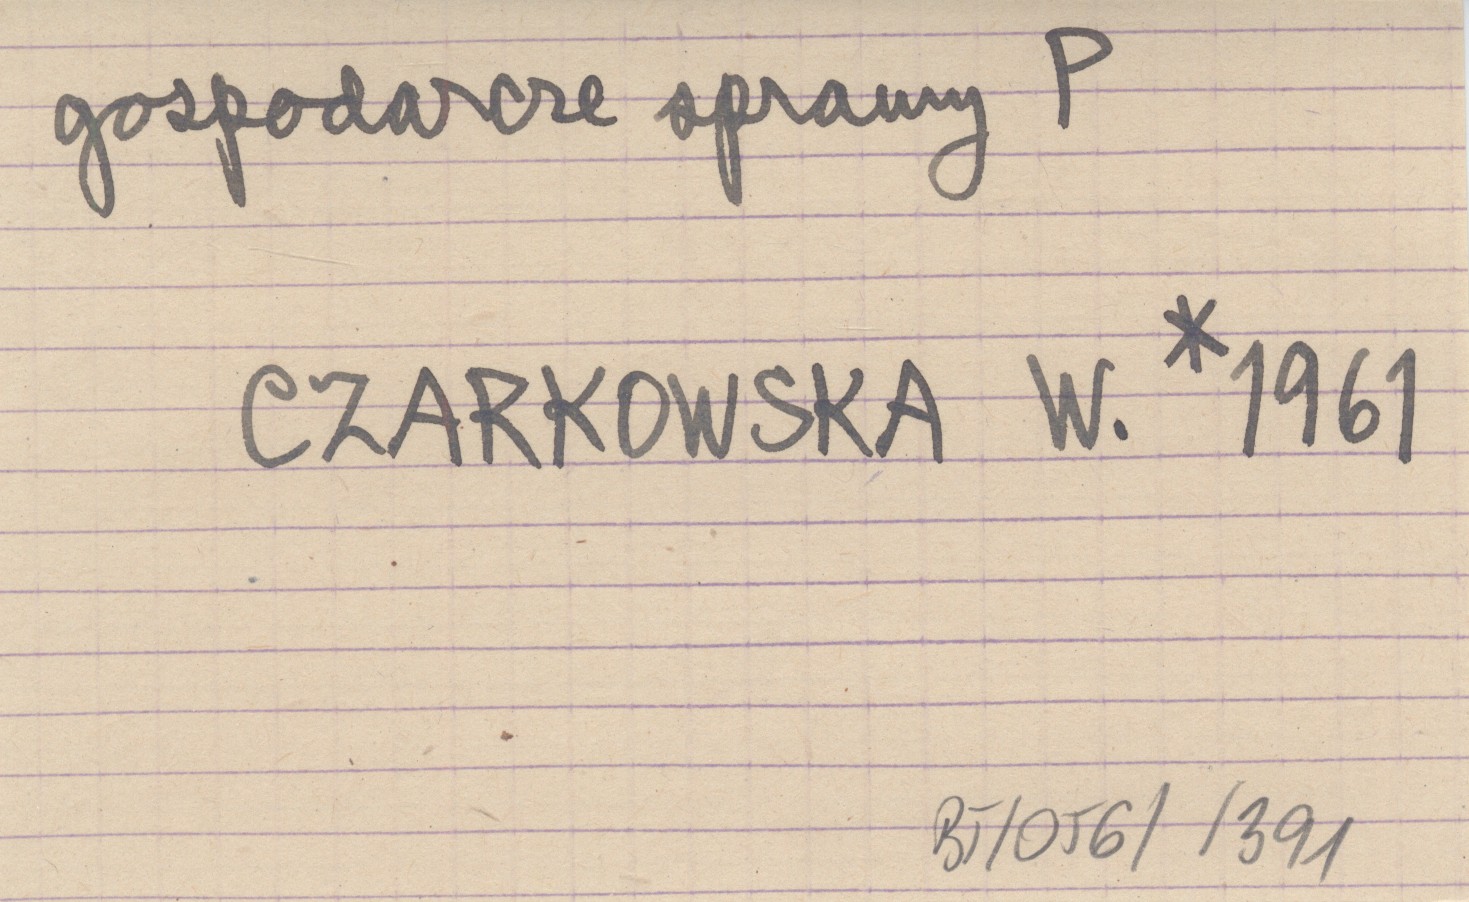 gospodarcze sprawy P
CZARKOWSKA W. *1961
BJ/056/ /391